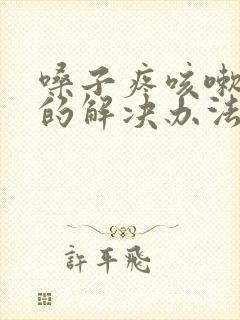 嗓子疼咳嗽
的解决办法
許平飛